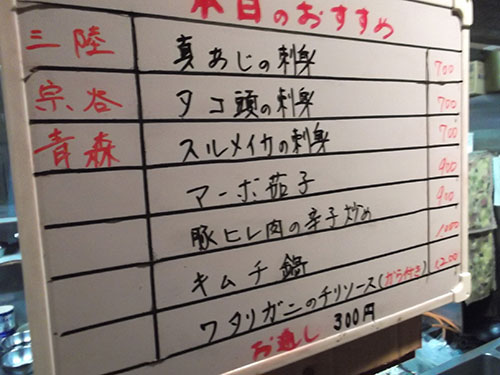 本日のおすすめ
三陸 真あじの刺身 700
宗谷 タコ頭の刺身 700
青森 スルメイカの刺身 700
マーボ茄子 900
豚ヒレ肉の辛子炒め 900
キムチ鍋 1000
ワタリガニのチリソース(から付き) 1200
お通し 300円